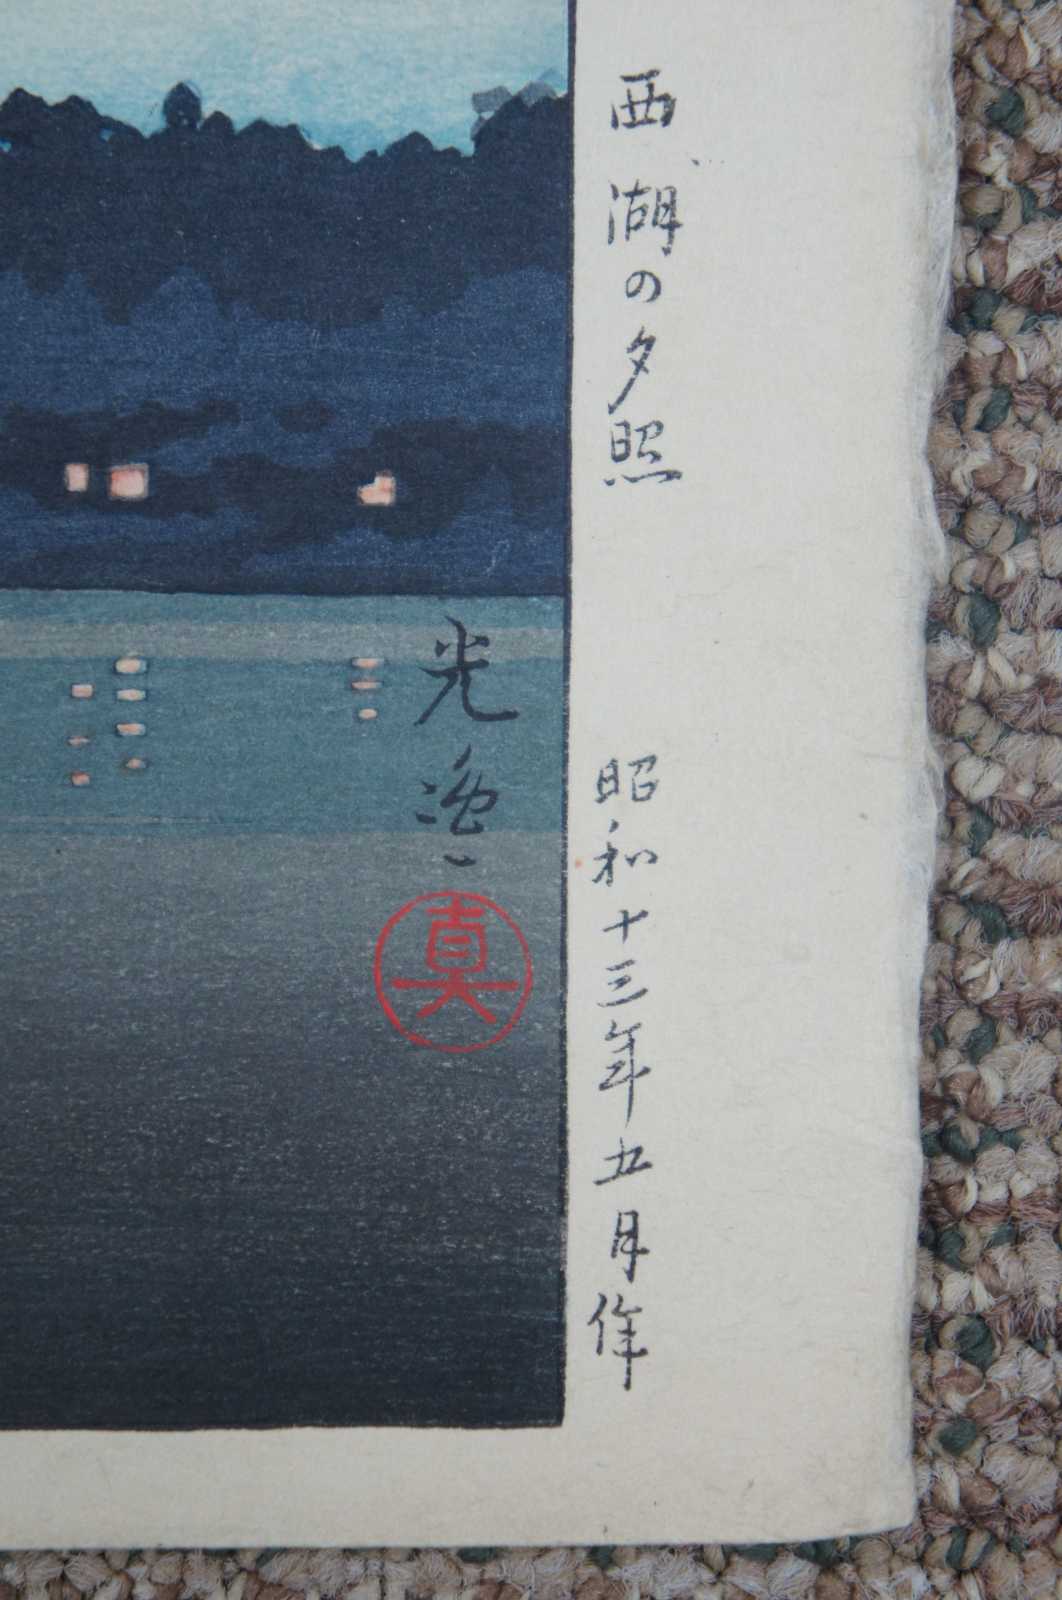 西湖の夕照
昭和十三年五月作
光逸
真